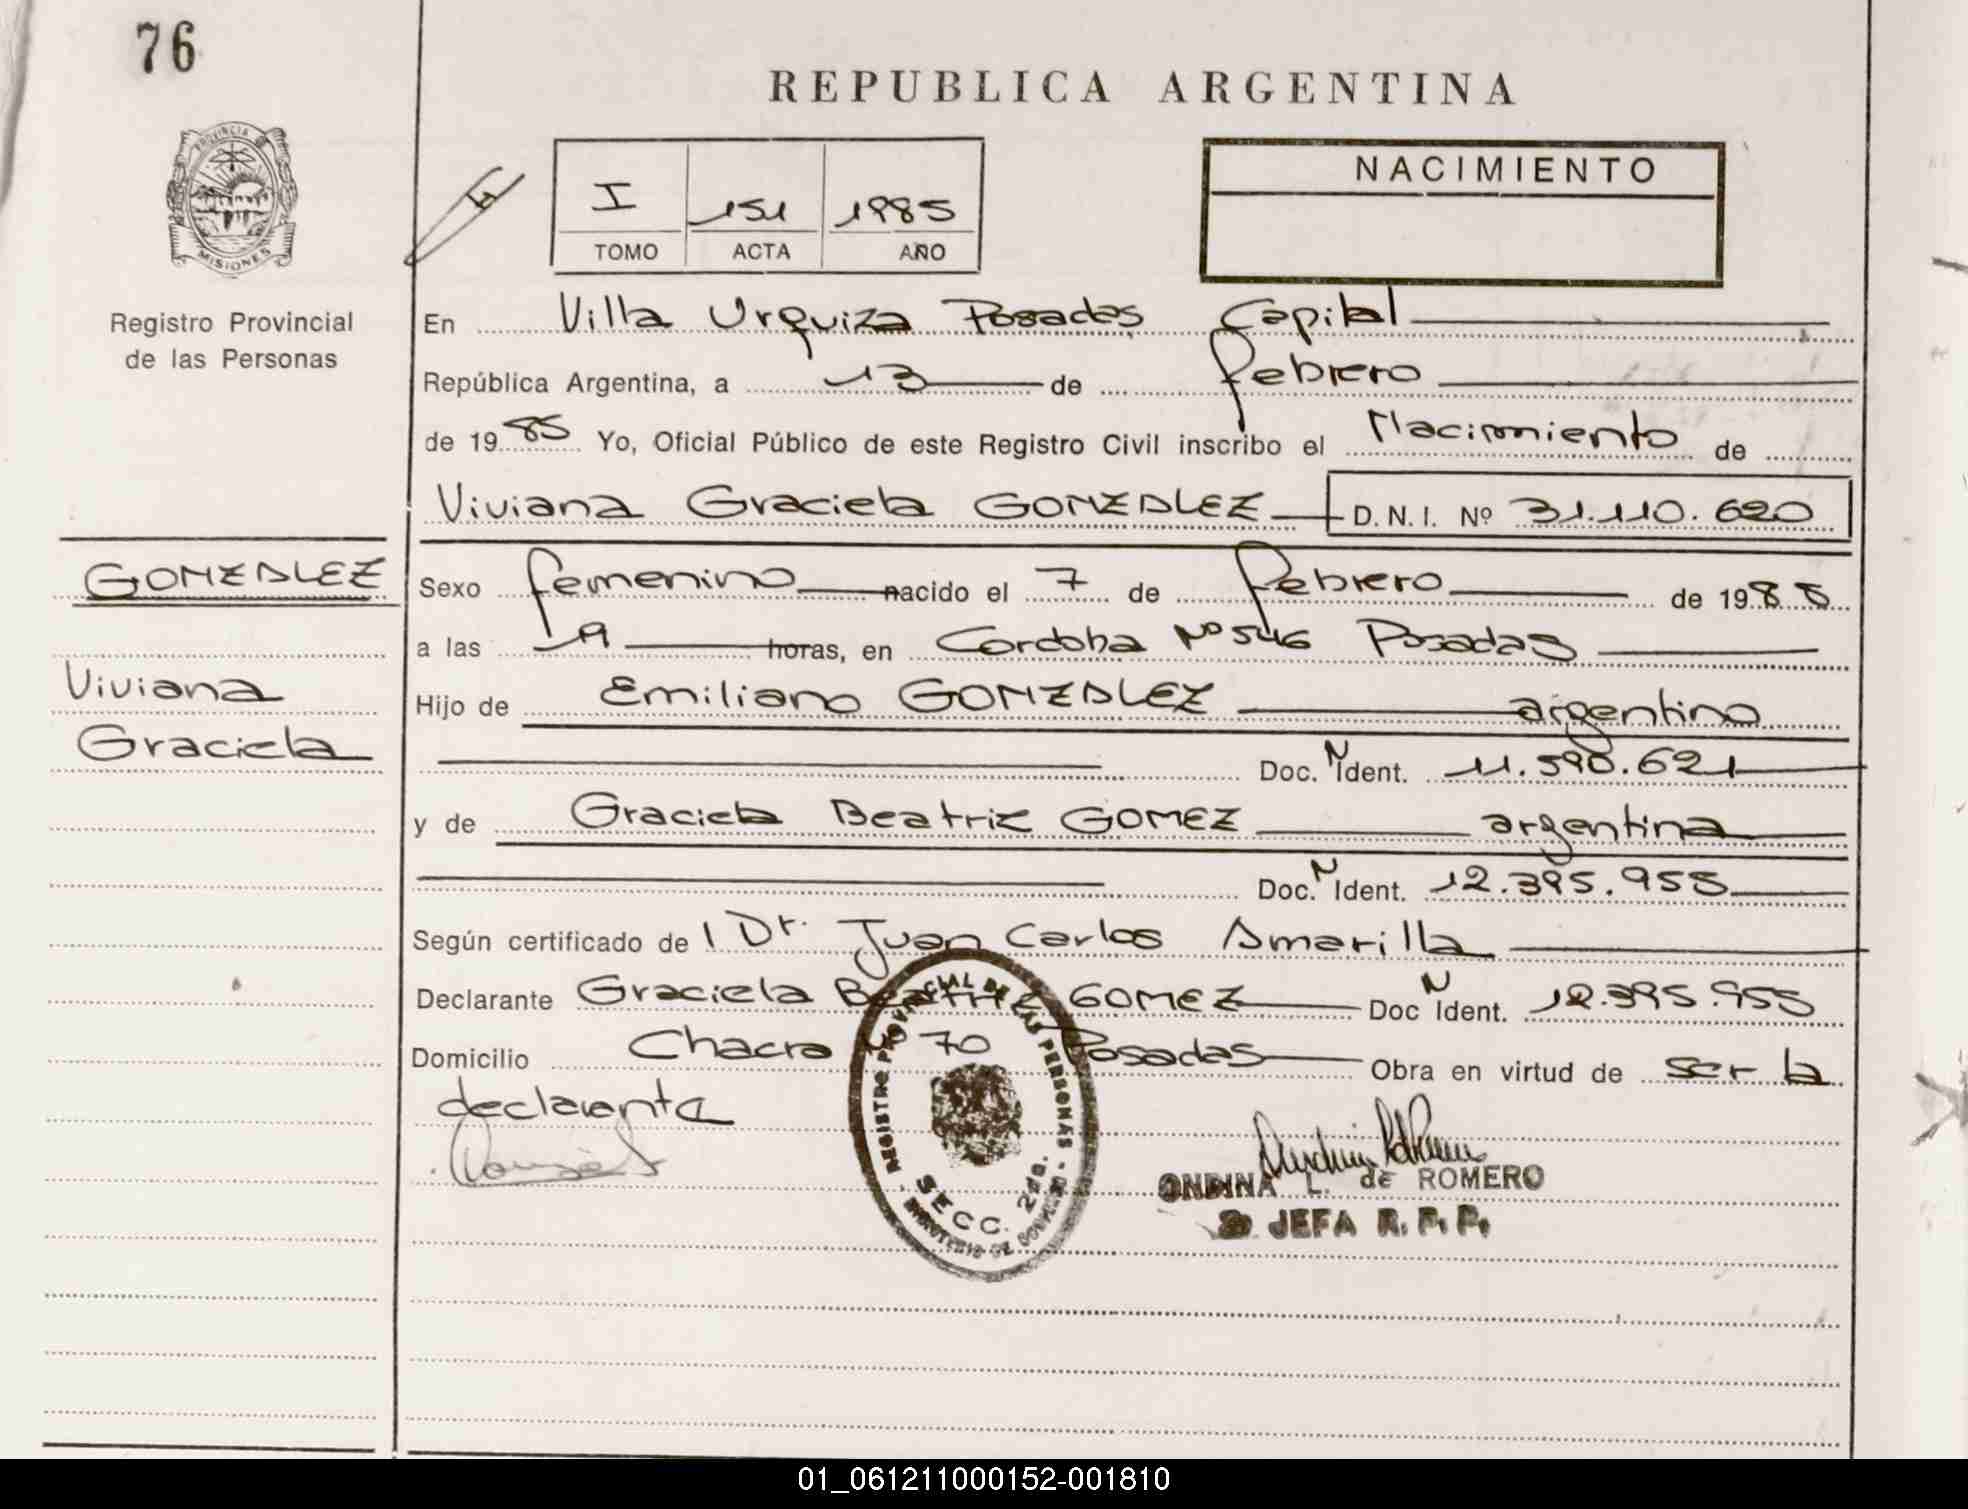 76
REPUBLICA ARGENTINA
PROVINCIA
MISIONES
Registro Provincial
de las Personas
I 151 1985
TOMO ACTA AÑO
NACIMIENTO
En Villa Urquiza Posadas Capital
República Argentina, a 13 de febrero
de 1985 Yo, Oficial Público de este Registro Civil inscribo el Nacimiento de
Viviana Graciela GONZALEZ D.N.I. Nº 31.110.620
GONZALEZ
Viviana
Graciela
Sexo femenino nacido el 7 de febrero de 1985
a las 19 horas, en Cordoba Nº 546 Posadas
Hijo de Emiliano GONZALEZ argentino
Doc. N Ident. 11.590.621
y de Graciela Beatriz GOMEZ argentina
Doc. N Ident. 12.395.955
Según certificado de l Dr. Juan Carlos Amarilla
Declarante Graciela Beatriz GOMEZ Doc N Ident. 12.395.955
Domicilio Chacra 70 Posadas Obra en virtud de ser la
declaranta
REGISTRO PROVINCIAL DE LAS PERSONAS
SECC. 2da.
MINISTERIO DE GOBIERNO
ONDINA L. de ROMERO
JEFA R. P. P.
01_061211000152-001810